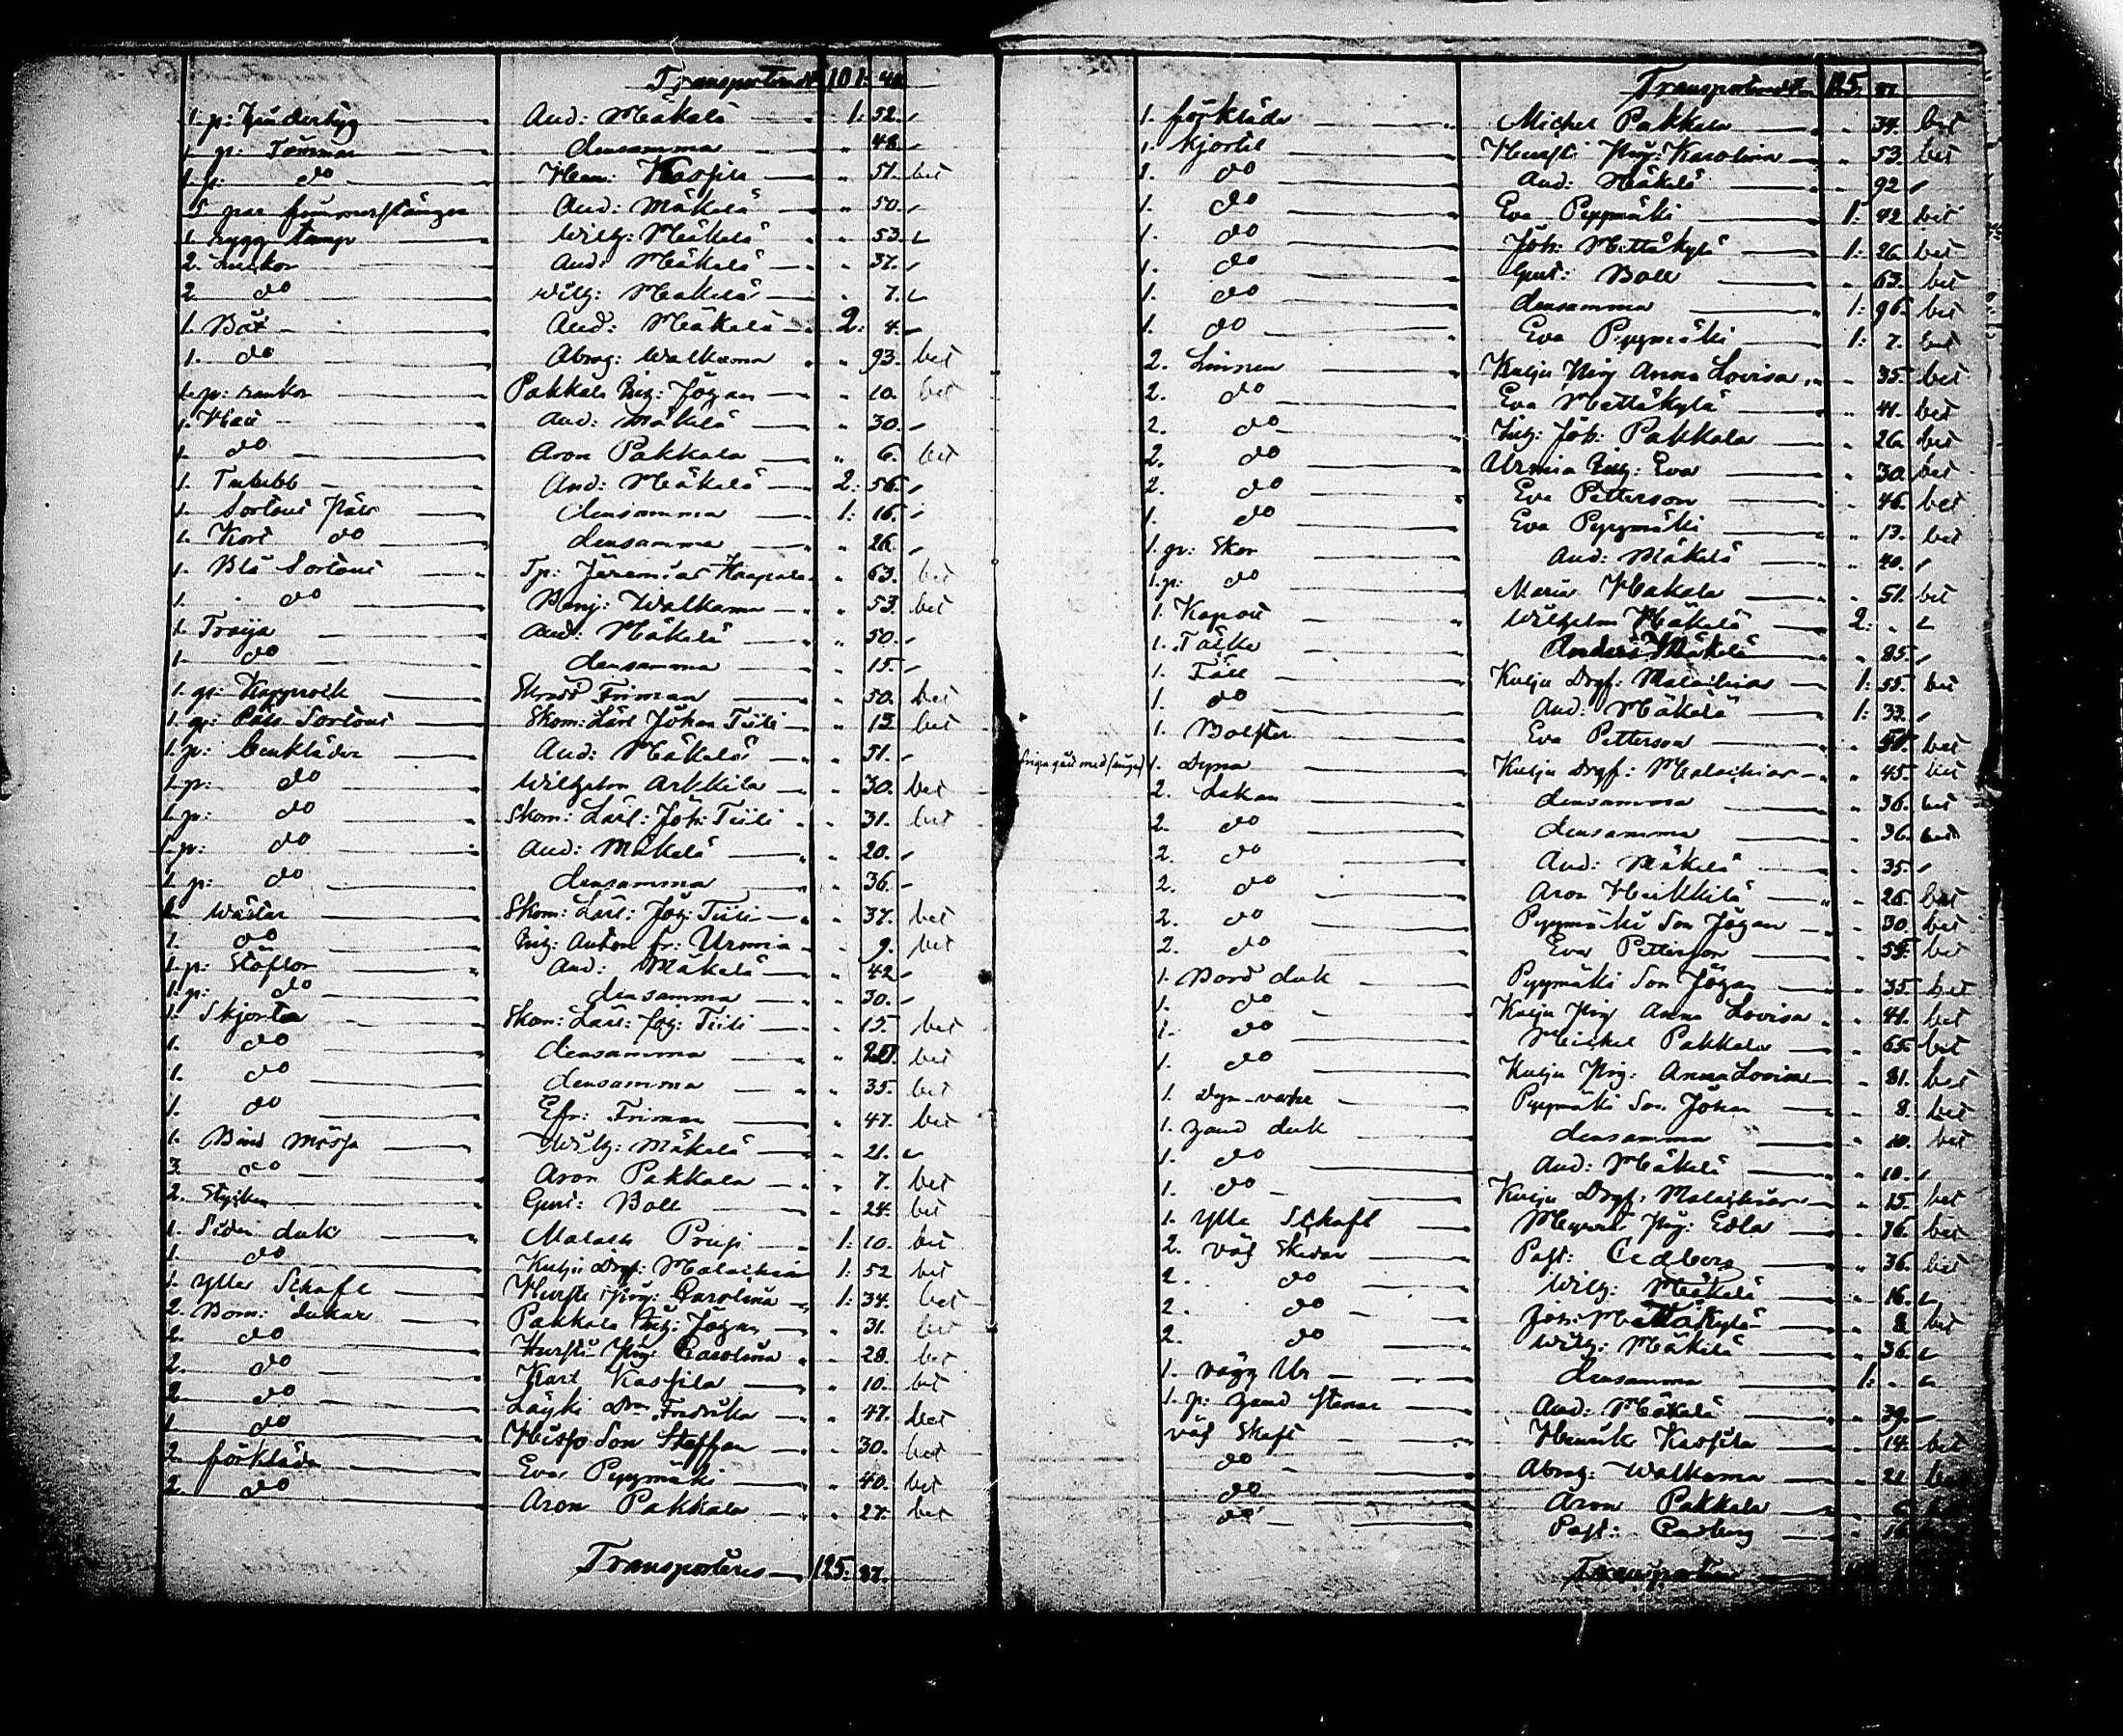 Transport 101: 40
1. p: And: Mäkelä 1: 52.
1. p: Tömmar densamma " 48
1. p: do Hen: Kassila " 51. bet
5 par And: Mäkelä " 50.
1 rygg Wilh: Mäkelä " 53.
2. And: Mäkelä " 37.
2. do Wilh: Mäkelä " 7.
1. Båt And: Mäkelä 2: 4.
1. do Abrah: Walkama " 93. bet
1. p: Pakkala Johan " 10. bet
1. And: Mäkelä " 30.
1. do Aron Pakkala " 6. bet
1. And: Mäkelä 2: 56.
1. Sortout Päls densamma 1: 16.
1. Kort do densamma " 26
1. Blå Sortout Tp: Jeremias Haapala " 63. bet
1. do Benj: Walkama " 53. bet
1. Tröija And: Mäkelä " 50.
1. do densamma " 15.
1. Friman " 50. bet
1. Sortout Skom: Lärl Johan Tiili " 13. bet
1. p: benkläder And: Mäkelä " 51.
1. p: do Wilhelm Arkkila " 30. bet
1. p: do Skom: Lärl: Joh: Tiili " 31. bet
1. p: do And: Mäkelä " 20.
1. p: do densamma " 36.
1. Wästar Skom: Lärl: Joh: Tiili " 37. bet
1. do Anton fr: Urmia " 9. bet
1. p: Stöflor And: Mäkelä " 42
1. p: do densamma " 30.
1. Skjorta Skom: Lärl: Joh: Tiili " 15. bet
1. do densamma " bet
1. do densamma " 35. bet
1. do Efr: Friman " 47. bet
1. Bind mössa Wilh: Mäkelä " 21.
3. do Aron Pakkala " 7. bet
2. Stycken Gust: Boll " 24. bet
1. Siden duk 1: 10. bet
1. do Kuija Drgf: Malachias 1: 52 bet
1. Ylle Schafl Hursti Pig: Carolina 1: 34. bet
2. Bom: dukar Pakkala Johan " 31. bet
2. do Hursti Pig: Carolina " 28. bet
2. do Karl Kassila " 10. bet
2. do Fredrika " 47. bet
1. do Son Staffan " 30. bet
2. förkläde Eva Pyymäki " 40. bet
2. do Aron Pakkala " 27. bet
Transporteres 125. 87.
Transport 125. 87
1. förkläde Michel Pakkala " 34. bet
1. Kjortel Hursti Pig: Karolina " 53. bet
1. do And: Mäkelä " 92
1. do Eva Pyymäki 1: 42 bet
1. do Joh: Mettäkylä 1: 26 bet
1. do Gust: Boll " 63. bet
1. do densamma 1: 96. bet
1. do Eva Pyymäki 1: 7. bet
2. Linnen Kuija Pig Anna Lovisa " 35. bet
2. do Eva Mettäkylä " 41. bet
2. do Joh: Pakkala " 26 bet
2. do Urmia Eva " 30. bet
2. do Eva Petterson " 46. bet
1. do Eva Pyymäki " 13. bet
1. p: Skor And: Mäkelä " 40.
1. p: do Maria " 51. bet
1. Kapott Wilhelm Mäkelä 2: "
1. Täcke Anders Mäkelä " 85.
1. Fäll Kuija Drgf: Malachias 1: 55. bet
1. do And: Mäkelä 1: 33.
1. Bolster Eva Petterson " bet
1. Dyna Kuija Drgf: Malachias " 45. bet
2. Lakan densamma " 36. bet
2. do densamma " 36. bet
2. do And: Mäkelä " 35.
2. do Aron Heikkilä " 26. bet
2. do Pyymäki Son Johan " 30. bet
2. do Eva Petterson " bet
1. Bord duk Pyymäki Son Johan " 35. bet
1. do Kuija Pig Anna Lovisa " 41. bet
1. do Michel Pakkala " 65. bet
1. do Kuija Pig: Anna Lovisa " 81. bet
1. Dyn-vahr Pyymäki Son Johan " 8. bet
1. hand duk densamma " 10. bet
1. do And: Mäkelä " 10.
1. do Kuija Drgf: Malachias " 15. bet
1. Ylle Schafl Pig: Edla " 76. bet
2. väf Skedar Past: Cedberg " 36. bet
2. do Wilh: Mäkelä " 16.
2. do Joh: Mettäkylä " 8 bet
2. do Wilh: Mäkelä " 36.
1. vägg Ur densamma 1: "
1. p: hand stenar And: Mäkelä " 39.
väf Skaft Henrik Kassila " 14. bet
do Abrah: Walkama " 21 bet
do Aron Pakkala
do Past: Cedberg " 16